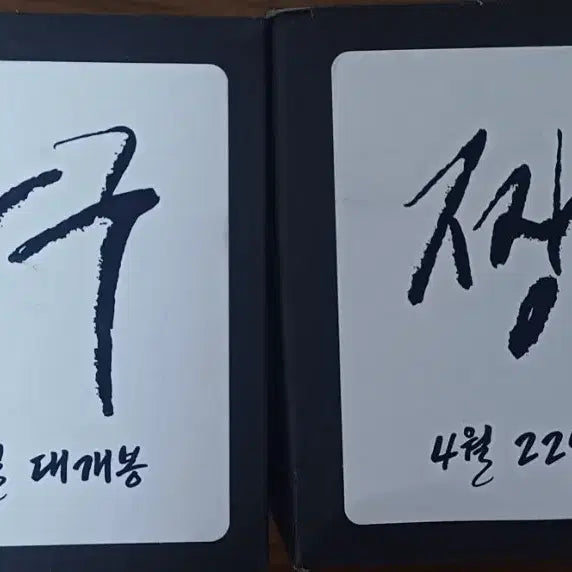 구
대개봉
짱
4월 22